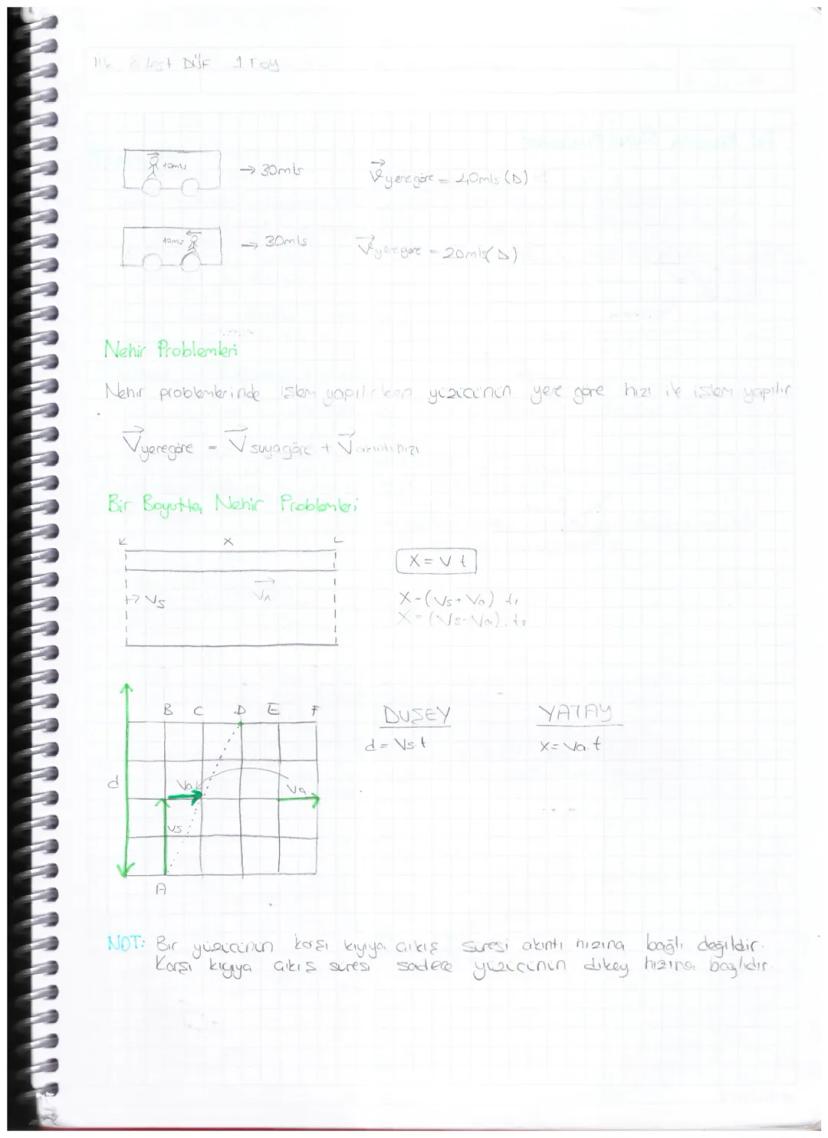 Test DİF 1 Foy
10m/s → 30m/s V yere göre = 40m/s (D)
10m/s → 30m/s V yere göre = 20m/s (D)
Nehir Problemleri
Nehir problemlerinde işlem yapılırken yüzücünün yere göre hızı ile işlem yapılır
V yere göre = V suya göre + V akıntı hızı
Bir Boyutta Nehir Problemleri
K X L
X = V t
Vs VA
X = (Vs + Va) t₁
X = (Vs - Va) . t₂
B C D E F
DÜŞEY YATAY
d = Vs t X = Va t
d
Va Va
Vs
A
NOT: Bir yüzücünün karşı kıyıya çıkış süresi akıntı hızına bağlı değildir.
Karşı kıyıya çıkış süresi sadece yüzücünün dikey hızına bağlıdır.